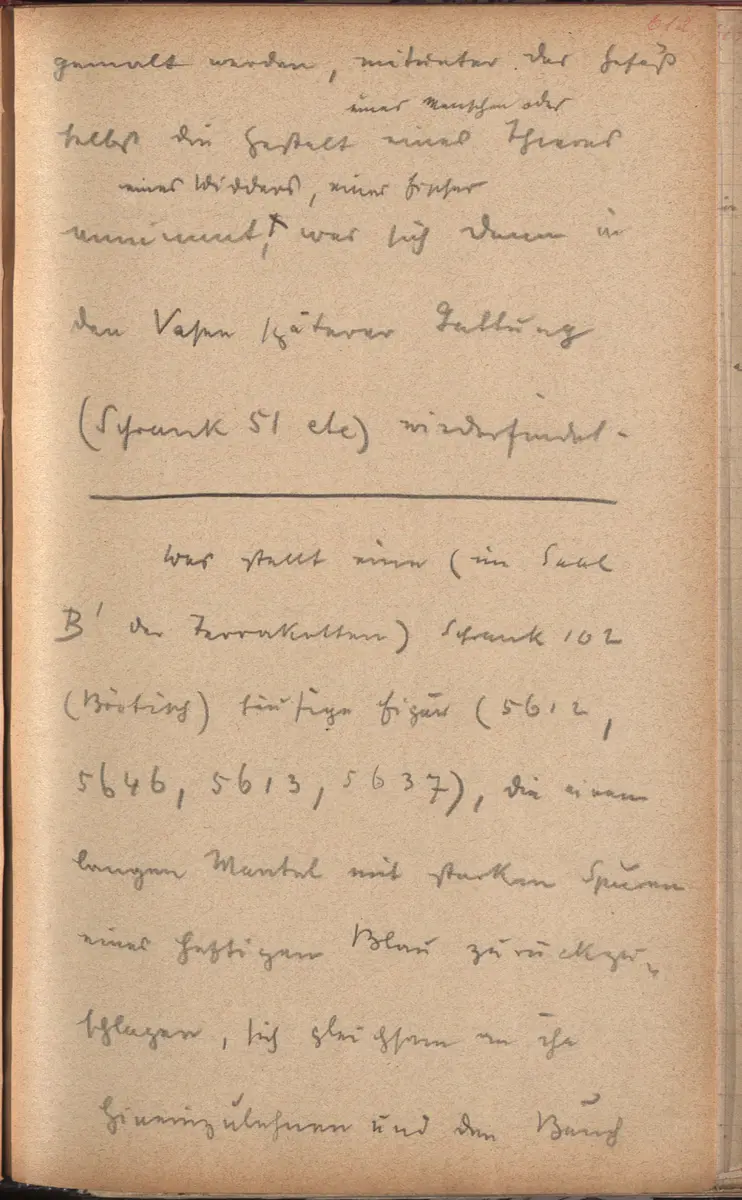 612
gemalt werden, mitunter das Gefäß
eines Menschen oder
selbst die Gestalt eines Thieres
eines Widders, eines Fisches
annimmt, was sich dann in
den Vasen späterer Gattung
(Schrank 51 etc) wiederfindet.
Was stellt eine (im Saal
B' der Terrakotten) Schrank 102
(Böotisch) häufige Figur (5612,
5646, 5613, 5637), die einen
langen Mantel mit starken Spuren
eines heftigen Blau zurückzu-
schlagen, sich gleichsam an ihn
hineinzulehnen und den Bauch